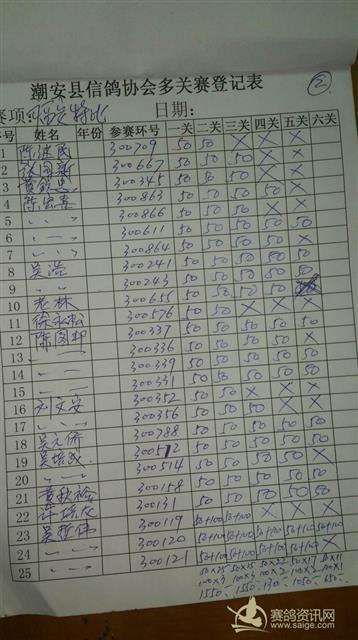 潮安县信鸽协会多关赛登记表
②
赛项: 日期:
序号 姓名 年份 参赛环号 一关 二关 三关 四关 五关 六关
1 陈波民 300709 50 50 × × ×
2 300667 50 50 50 × ×
3 300345 50 50 50 × ×
4 陈宏喜 300863 50 50 50 50 ×
5 〃 〃 300866 50 50 50 50
6 〃 〃 300611 50 50 50 50 50
7 〃 〃 300864 50 50 50 50
8 吴浩 300241 50 50 50 50 50
9 〃 〃 300243 50 50 50 50 50
10 老林 300655 50 50 50 50
11 徐永松 300576 50 50 × × ×
12 陈图却 300337 50 50 50 50 50
13 〃 〃 300336 50 50 50 50 50
14 〃 〃 300339 50 50 50 50 50
15 〃 〃 300331 50 50 50 50
16 刘文安 300352 50 50 50 × ×
17 〃 〃 300356 50 50 50 × ×
18 吴元侨 300788 50 50 50 50
19 吴培成 300512 50 50 50 50
20 〃 〃 300514 50 50 50 50
21 黄秋裕 300158 50 50 50 50 50
22 300131 50 50 × × ×
23 吴哲伟 300119 50+100 50+100 50+100 50+100 50+100
24 〃 〃 300120 50+100 50+100 50+100 50+100
25 〃 〃 300121 50+100 50+100
50×25 50×25 50×22 50×17 50×11
100×3 100×3
1550 1550 1300 1050 650
赛鸽资讯网
www.saige.com